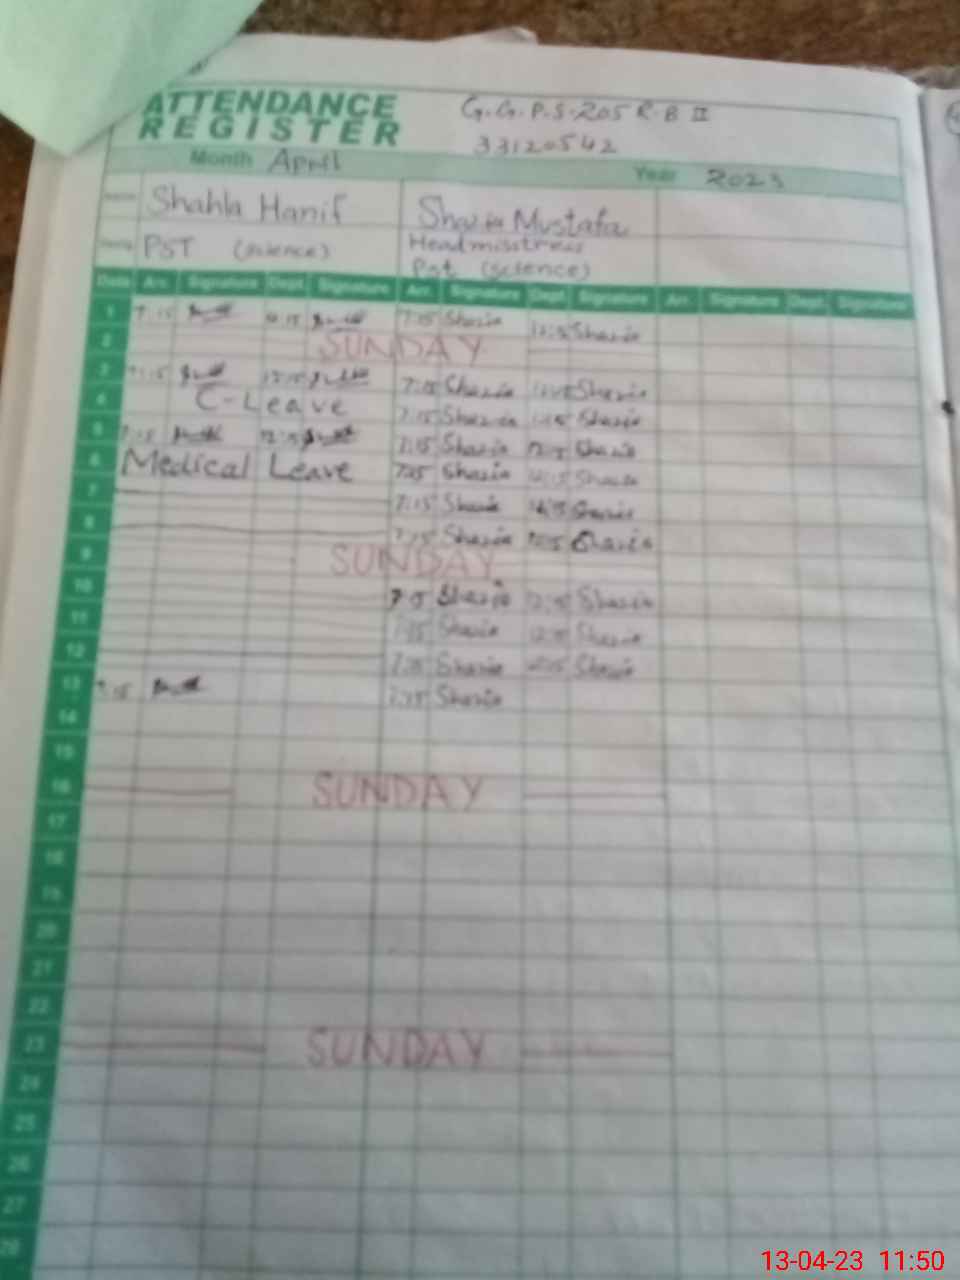 ATTENDANCE
REGISTER
G.G.P.S-205 R.B II
33120542
Month April Year 2023
Shahla Hanif Shazia Mustafa
PST (science) Headmisstress
Pst (science)
Date Arr. Signature Dept. Signature Arr. Signature Dept. Signature Arr. Signature Dept. Signature
1 7:15 7:15 Shazia 12:15 Shazia
2 SUNDAY
3 7:15 12:15 7:15 Shazia Shazia
4 C-Leave 7:15 Shazia Shazia
5 7:15 12:15 7:15 Shazia Shazia
6 Medical Leave Shazia 12:15 Shazia
7 7:15 Shazia Shazia
8 7:15 Shazia Shazia
9 SUNDAY
10 Shazia Shazia
11 Shazia Shazia
12 Shazia Shazia
13 7:15 Shazia
14
15
16 SUNDAY
17
18
19
20
21
22
23 SUNDAY
24
25
26
27
28
13-04-23 11:50